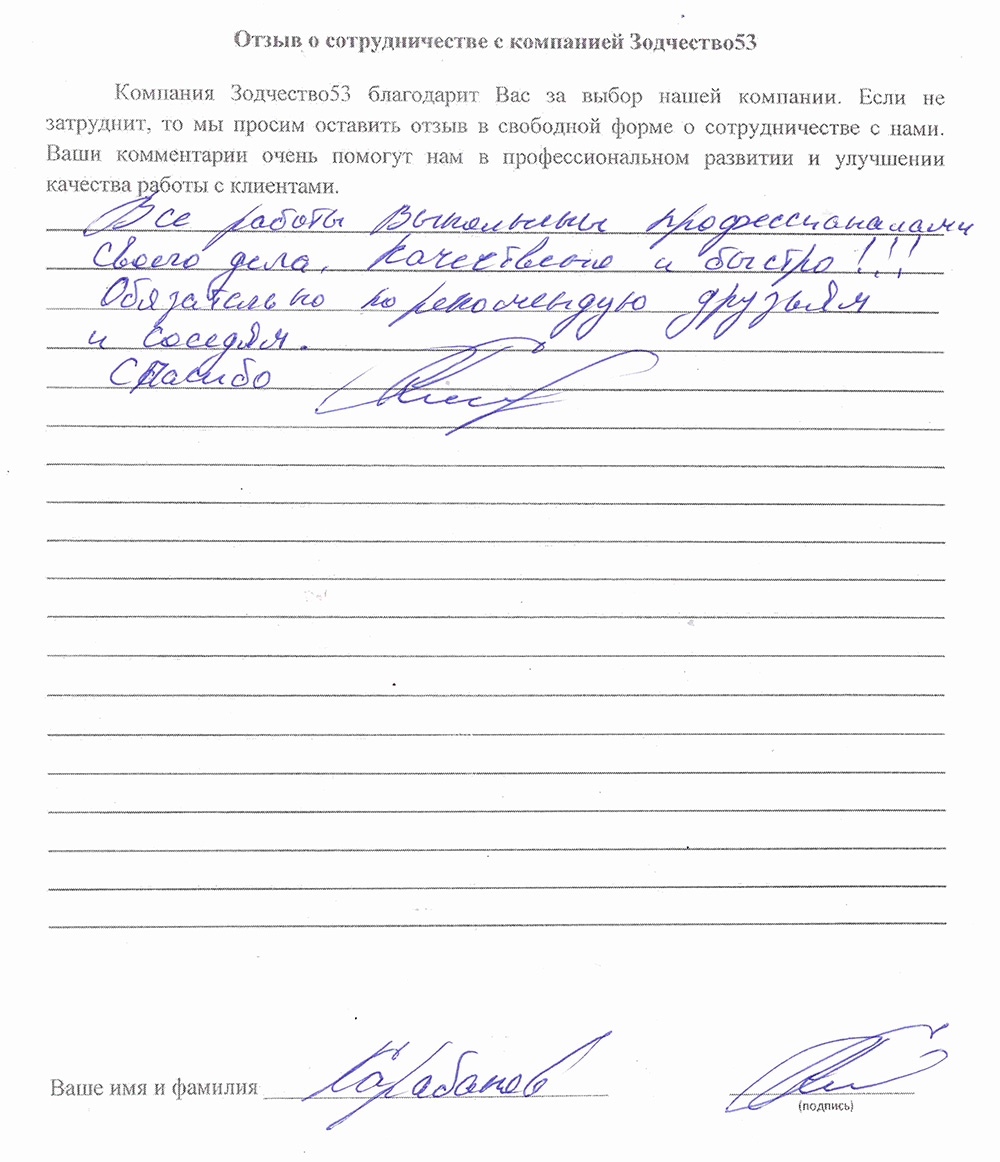 Отзыв о сотрудничестве с компанией Зодчество53
Компания Зодчество53 благодарит Вас за выбор нашей компании. Если не
затруднит, то мы просим оставить отзыв в свободной форме о сотрудничестве с нами.
Ваши комментарии очень помогут нам в профессиональном развитии и улучшении
качества работы с клиентами.
Все работы выполнены профессионалами
своего дела. Качественно и быстро!!!
Обязательно порекомендую друзьям
и соседям.
Спасибо
Ваше имя и фамилия Карабанов
(подпись)